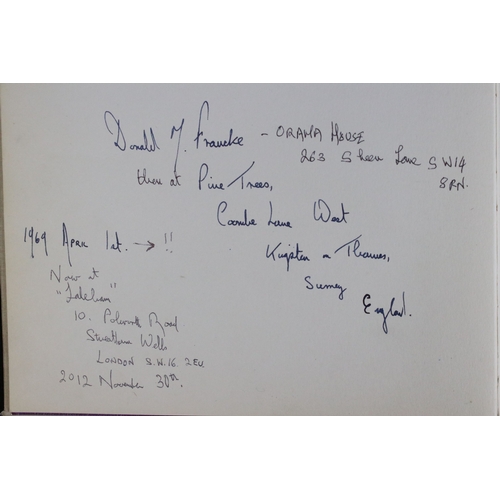 Donald M. Francke - ORAMA HOUSE
263 Sheen Lane SW14
8RN.
then at Pine Trees,
Coombe Lane West
Kingston on Thames,
Surrey
England.
1969 April 1st. → !!
Now at
10. Polworth Road
London S.W.16 2EU.
2012 November 30th.